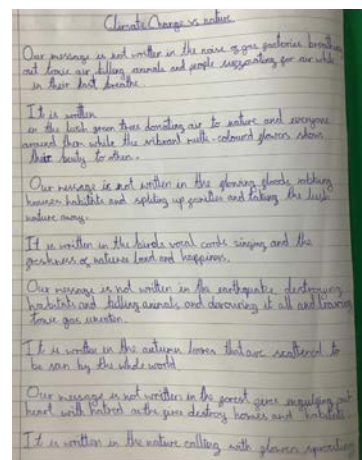 Climate Change vs nature
Our message is not written in the noise of gas factories breathing
out toxic air, killing animals and people suffocating for air while
in their last breathe.
It is written
in the lush green trees donating air to nature and everyone
around them while the vibrant multi-coloured flowers show
their beauty to others.
Our message is not written in the flowing floods robbing
houses habitats and spliting up families and taking the lush
nature away.
It is written in the birds vocal cords singing and the
freshness of natures land and happiness.
Our message is not written in the earthquake destroying
habitats and killing animals and devouring it all and leaving
toxic gas
It is written in the autumn leaves that are scattered to
be seen by the whole world.
Our message is not written in the forest fires engulfing our
heart with hatred as the fires destroy homes and habitats
It is written in the nature calling with flowers sprouting